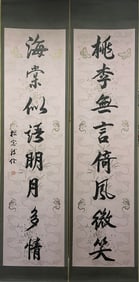 桃李無言倚風微笑
海棠似語明月多情